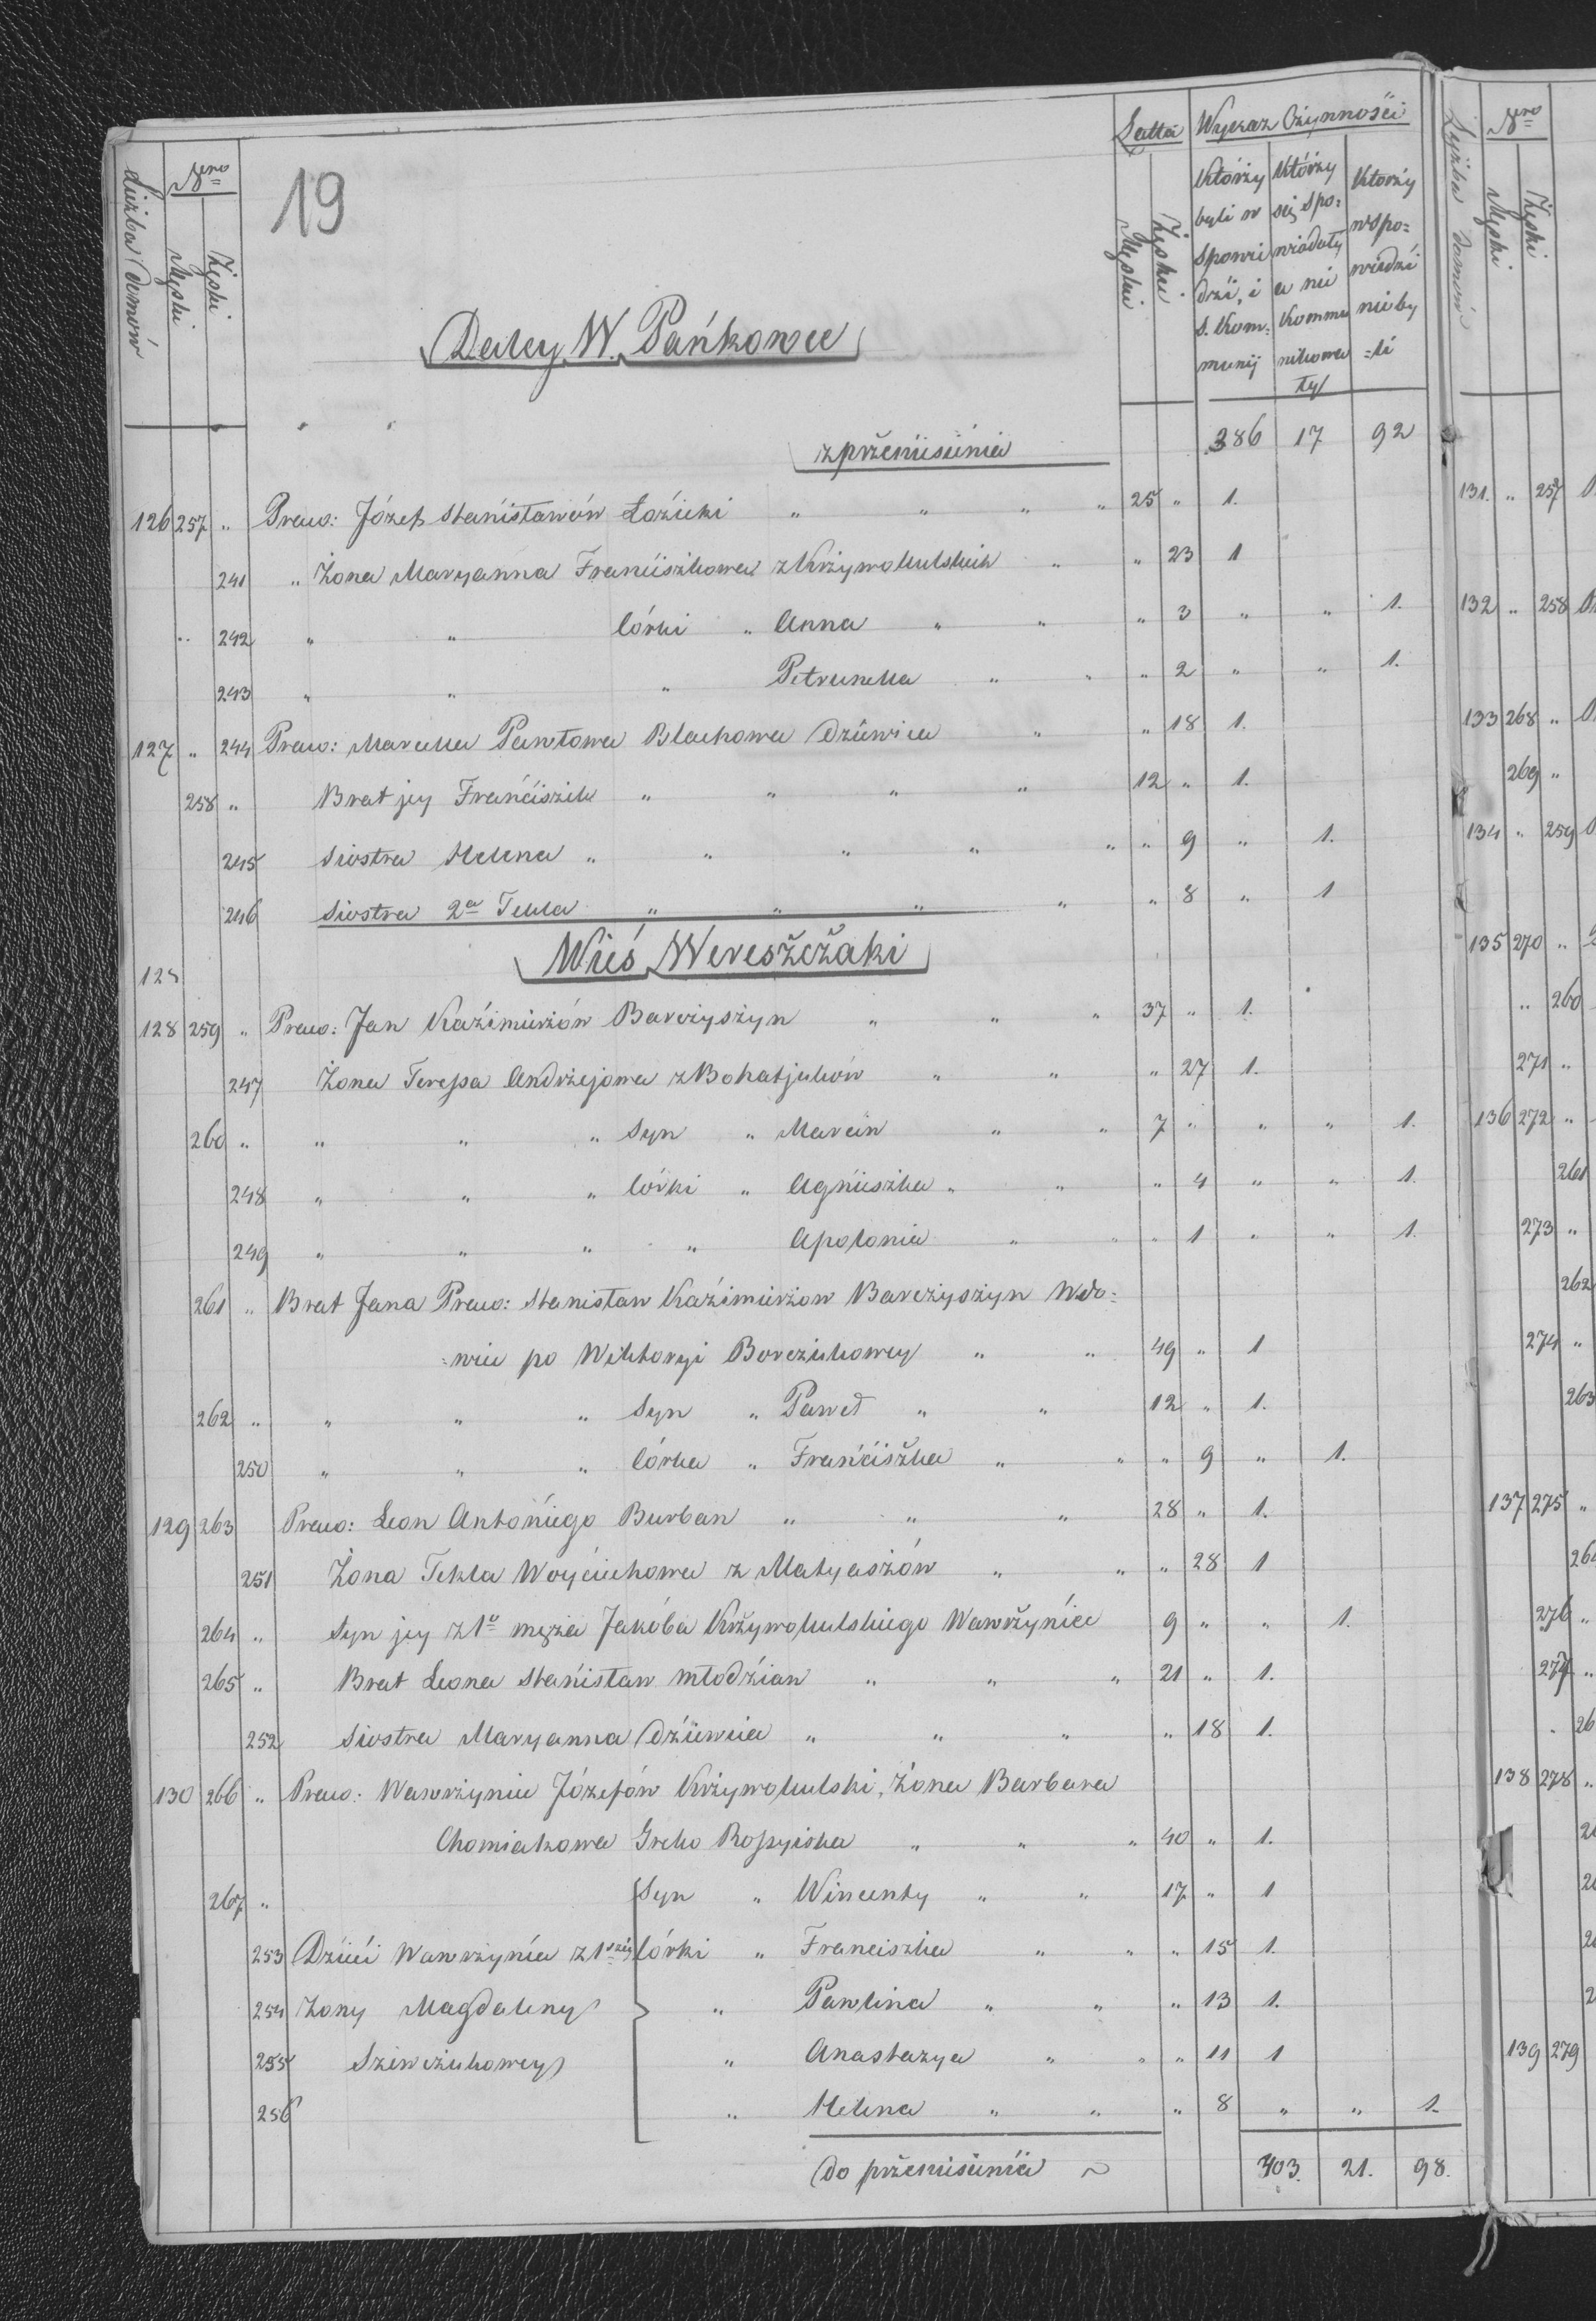 19
Liczba domów
Nero
Męski
Żęski
Latta
Męskie
Żęskie
Wykaz Czynności
Którzy byli w spowiedzi, i S. Kommunij
Którzy się spowiadały a nie Kommunikowały
Którzy w spowiedzi nie byli
Daley W. Pańkowce
z przeniesienia 386 17 92
126 257 " Prac: Józef Stanisławów Łozicki " " " " 25 " 1.
241 " Żona Maryanna Franciszkowa z Krzywokulskich " " 23 1
" 242 " " Córki " Anna " " " 3 " " 1.
243 " " " Petrunella " " " 2 " " 1.
127 " 244 Prac: Marcella Pawłowa Blachowa Dziewica " " 18 1.
258 " Brat jey Franciszek " " " " 12 " 1.
245 Siostra Helena " " " " " " 9 " 1.
246 Siostra 2a Tekla " " " " " 8 " 1
Wieś Wereszczaki
128 259 " Prac: Jan Kaźimierzów Barczyszyn " " " 37 " 1.
247 Żona Teressa Andrzejowa z Bohatjuków " " " 27 1.
260 " " " " Syn " Marcin " " 7 " " " 1.
248 " " " Córki " Agnieszka " " " 4 " " 1.
249 " " " " Apolonia " " " 1 " " 1.
261 " Brat Jana Prac: Stanisław Kaźimierzow Barczyszyn Wdo=
=wiec po Wiktoryi Borcziukowey " " 49 " 1
262 " " " " Syn " Paweł " " 12 " 1.
250 " " " Córka " Franciszka " " " 9 " 1.
129 263 Prac: Leon Antoniego Burban " " " 28 " 1.
251 Żona Tekla Woyciechowa z Matyaszów " " " 28 1
264 " Syn jey z 1o męża Jakóba Krzywokulskiego Wawrzyniec 9 " " 1.
265 " Brat Leona Stanisław młodzian " " " 21 " 1.
252 Siostra Maryanna Dziewica " " " " 18 1.
130 266 " Prac: Wawrzyniec Józefów Krzywokulski, Żona Barbara
Chomiakowa Greko Rossyiska " " " 40 " 1.
267 " Syn " Wincenty " " 17 " 1
253 Dzieci Wawrzyńca z 1széj Córki " Franciszka " " " 15 1.
254 Żony Magdaleny " Pawlina " " " 13 1.
255 Szewczukowey " Anastazya " " " 11 1
256 " Helena " " " 8 " " 1.
Do przeniesienia ~ 403. 21. 98.
Liczba domów
Nero
Męski
Żęski
131. " 257
132 " 258
133 268 "
269 "
134 " 259
135 270 "
" 260
271 "
136 272 "
261
273 "
262
274 "
263
137 275 "
276 "
277 "
138 278 "
139 279